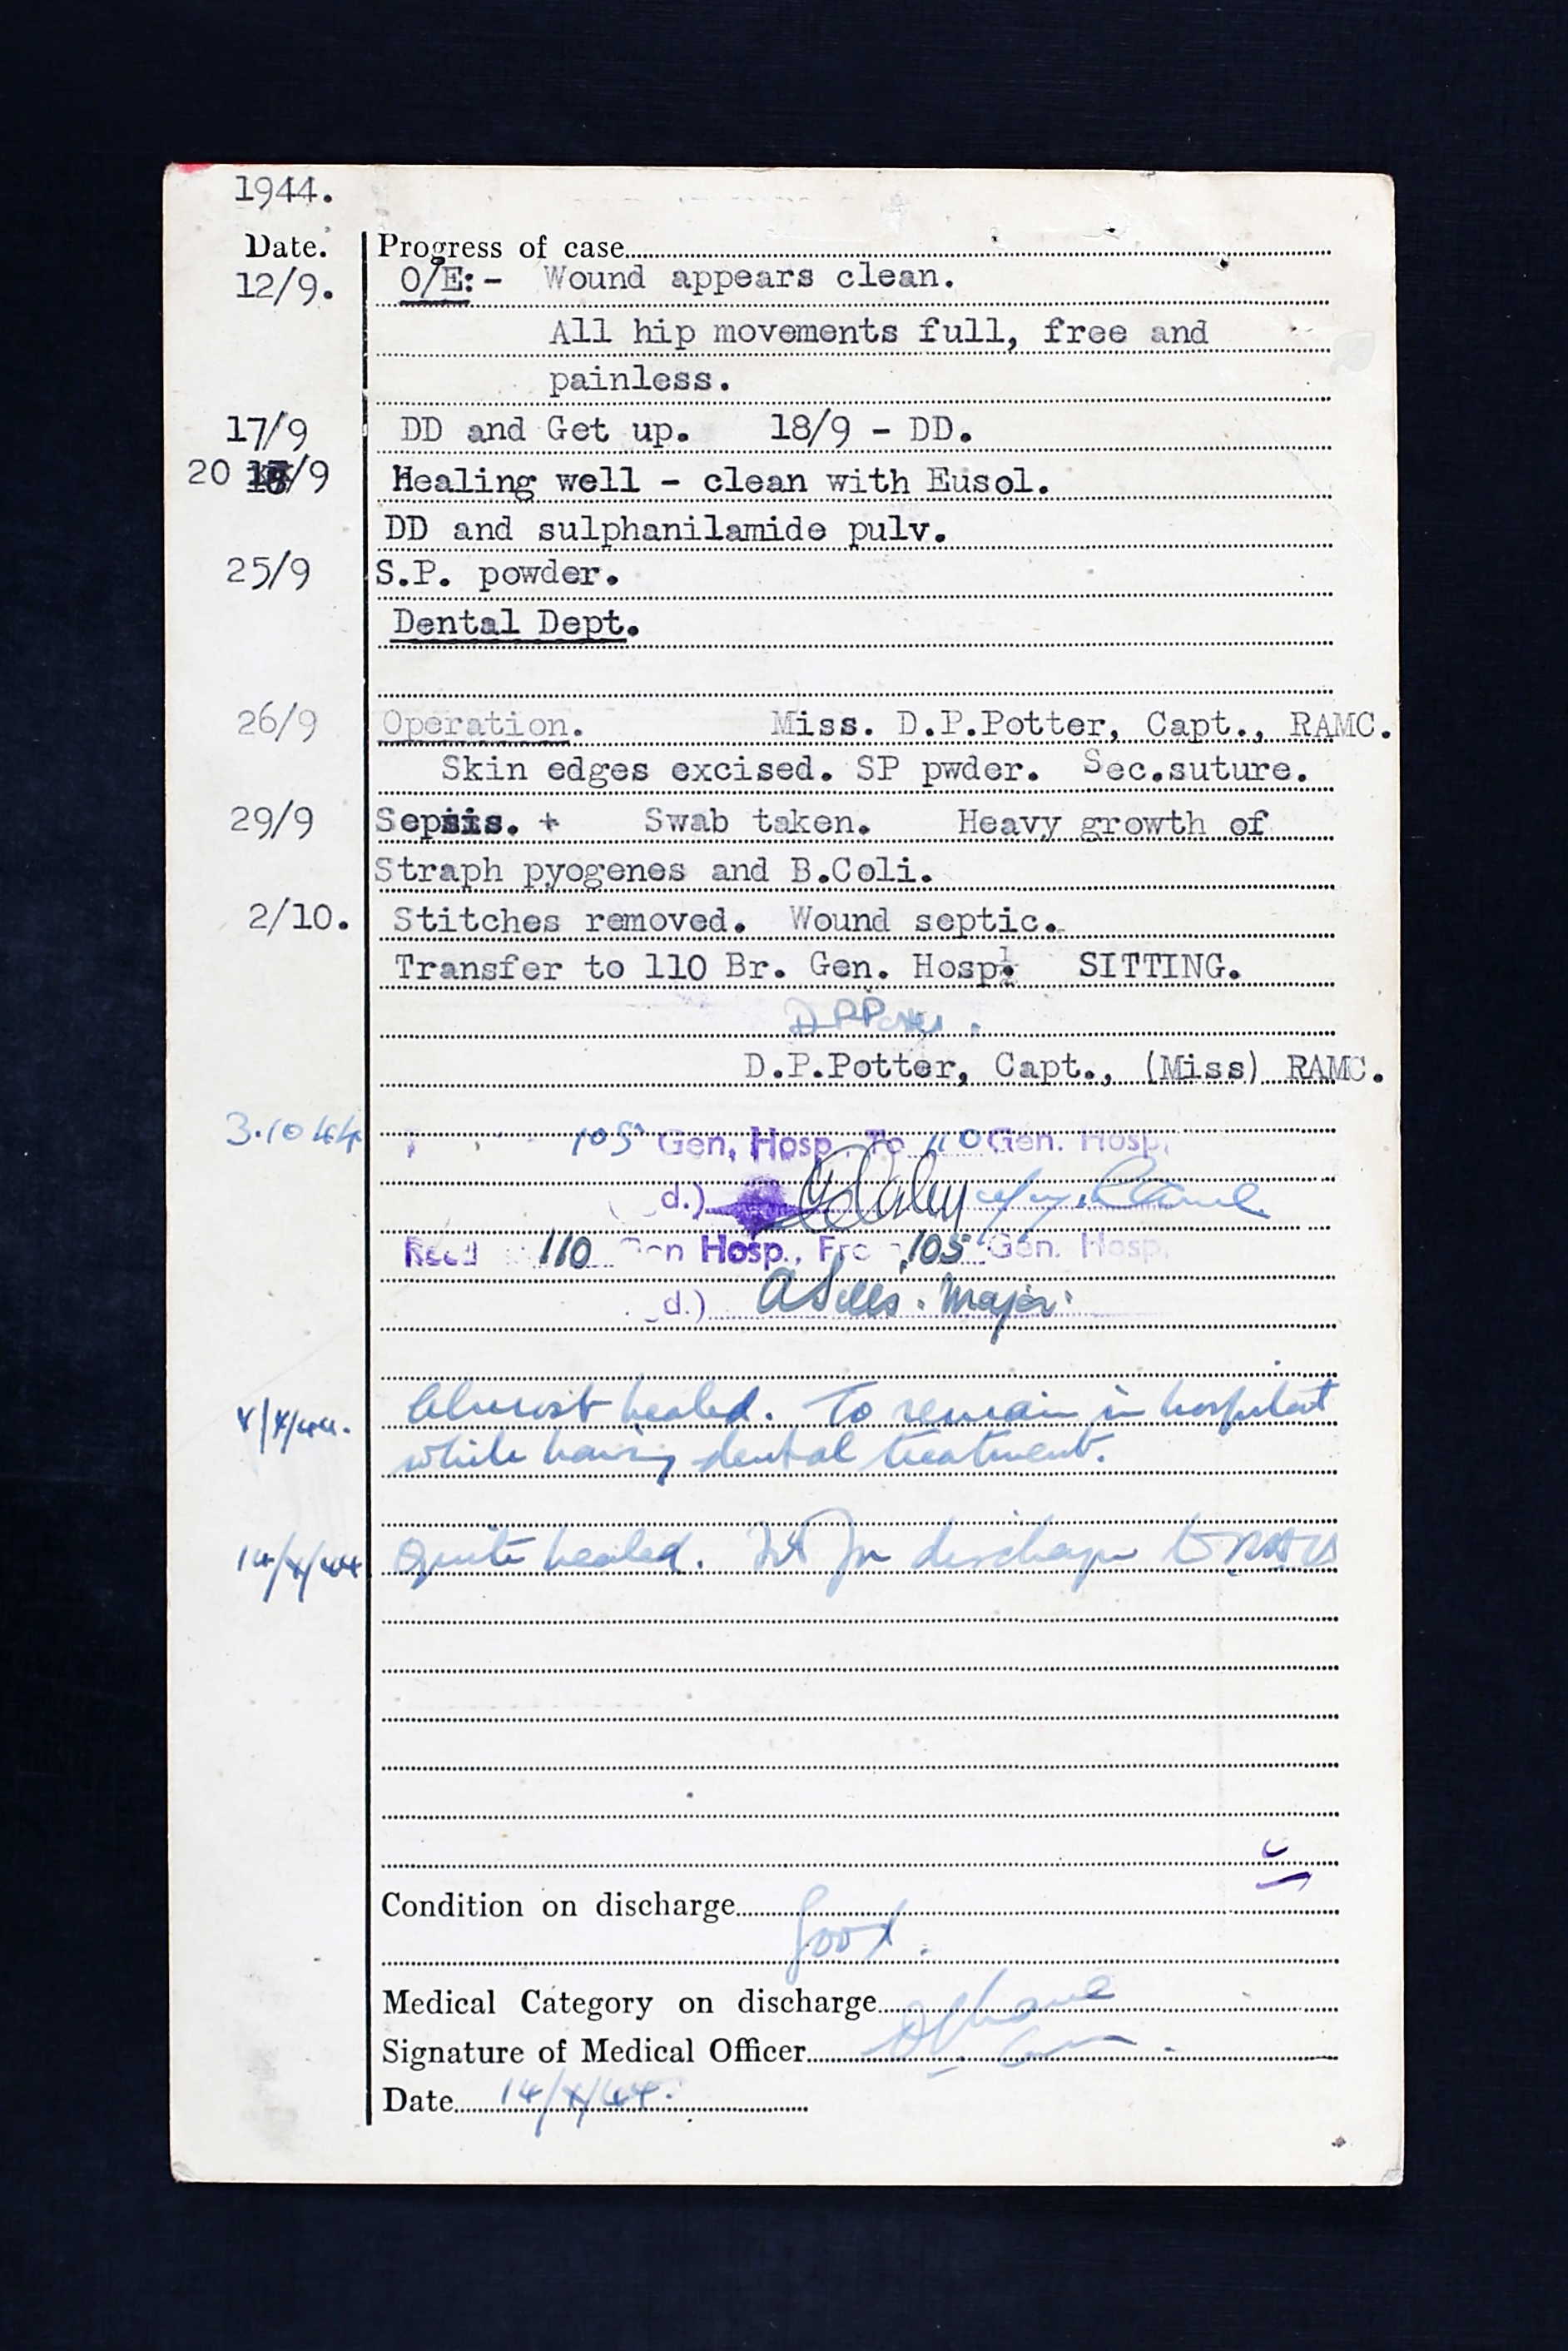 1944.
Date. Progress of case
12/9. O/E:- Wound appears clean.
All hip movements full, free and
painless.
17/9 DD and Get up. 18/9 - DD.
20 /9 Healing well - clean with Eusol.
DD and sulphanilamide pulv.
25/9 S.P. powder.
Dental Dept.
26/9 Operation. Miss. D.P.Potter, Capt., RAMC.
Skin edges excised. SP pwder. Sec.suture.
29/9 Sepsis. + Swab taken. Heavy growth of
Straph pyogenes and B.Coli.
2/10. Stitches removed. Wound septic.
Transfer to 110 Br. Gen. Hosp. SITTING.
DPPotter.
D.P.Potter, Capt., (Miss) RAMC.
3.10 44 105 Gen, Hosp. To 110 Gen. Hosp.
d.)
Recd 110 Gen Hosp., From 105 Gen. Hosp.
d.) Major.
Almost healed. To remain in hospital
while having dental treatment.
14/X/44 Quite healed. Fit for discharge to
Condition on discharge
Good.
Medical Category on discharge
Signature of Medical Officer
Date 14/X/44.